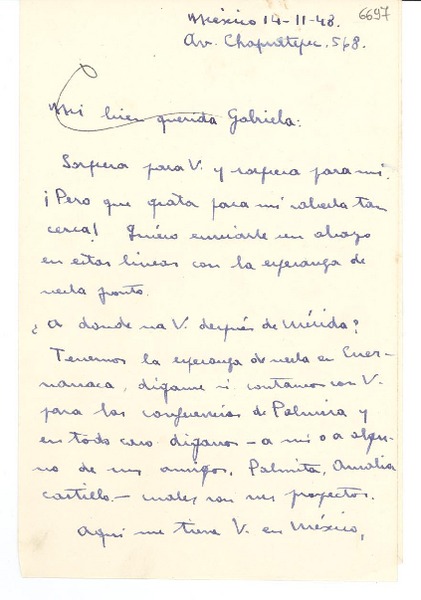 6697
México 14-11-48.
Av. Chapultepec. 568.
Mi bien querida Gabriela:
Sorpresa para V. y sorpresa para mi.
¡Pero que grata para mi saberla tan
cerca! Quiero enviarle un abrazo
en estas lineas con la esperanza de
verla pronto.
¿A donde va V. después de Mérida?
Tenemos la esperanza de verla en Cuer-
navaca, digame si contamos con V.
para las conferencias de Palmira y
en todo caso diganos - a mi o a algu-
no de sus amigos, Palmita, Amalia
Castillo - cuales son sus proyectos.
Aqui me tiene V. en México,